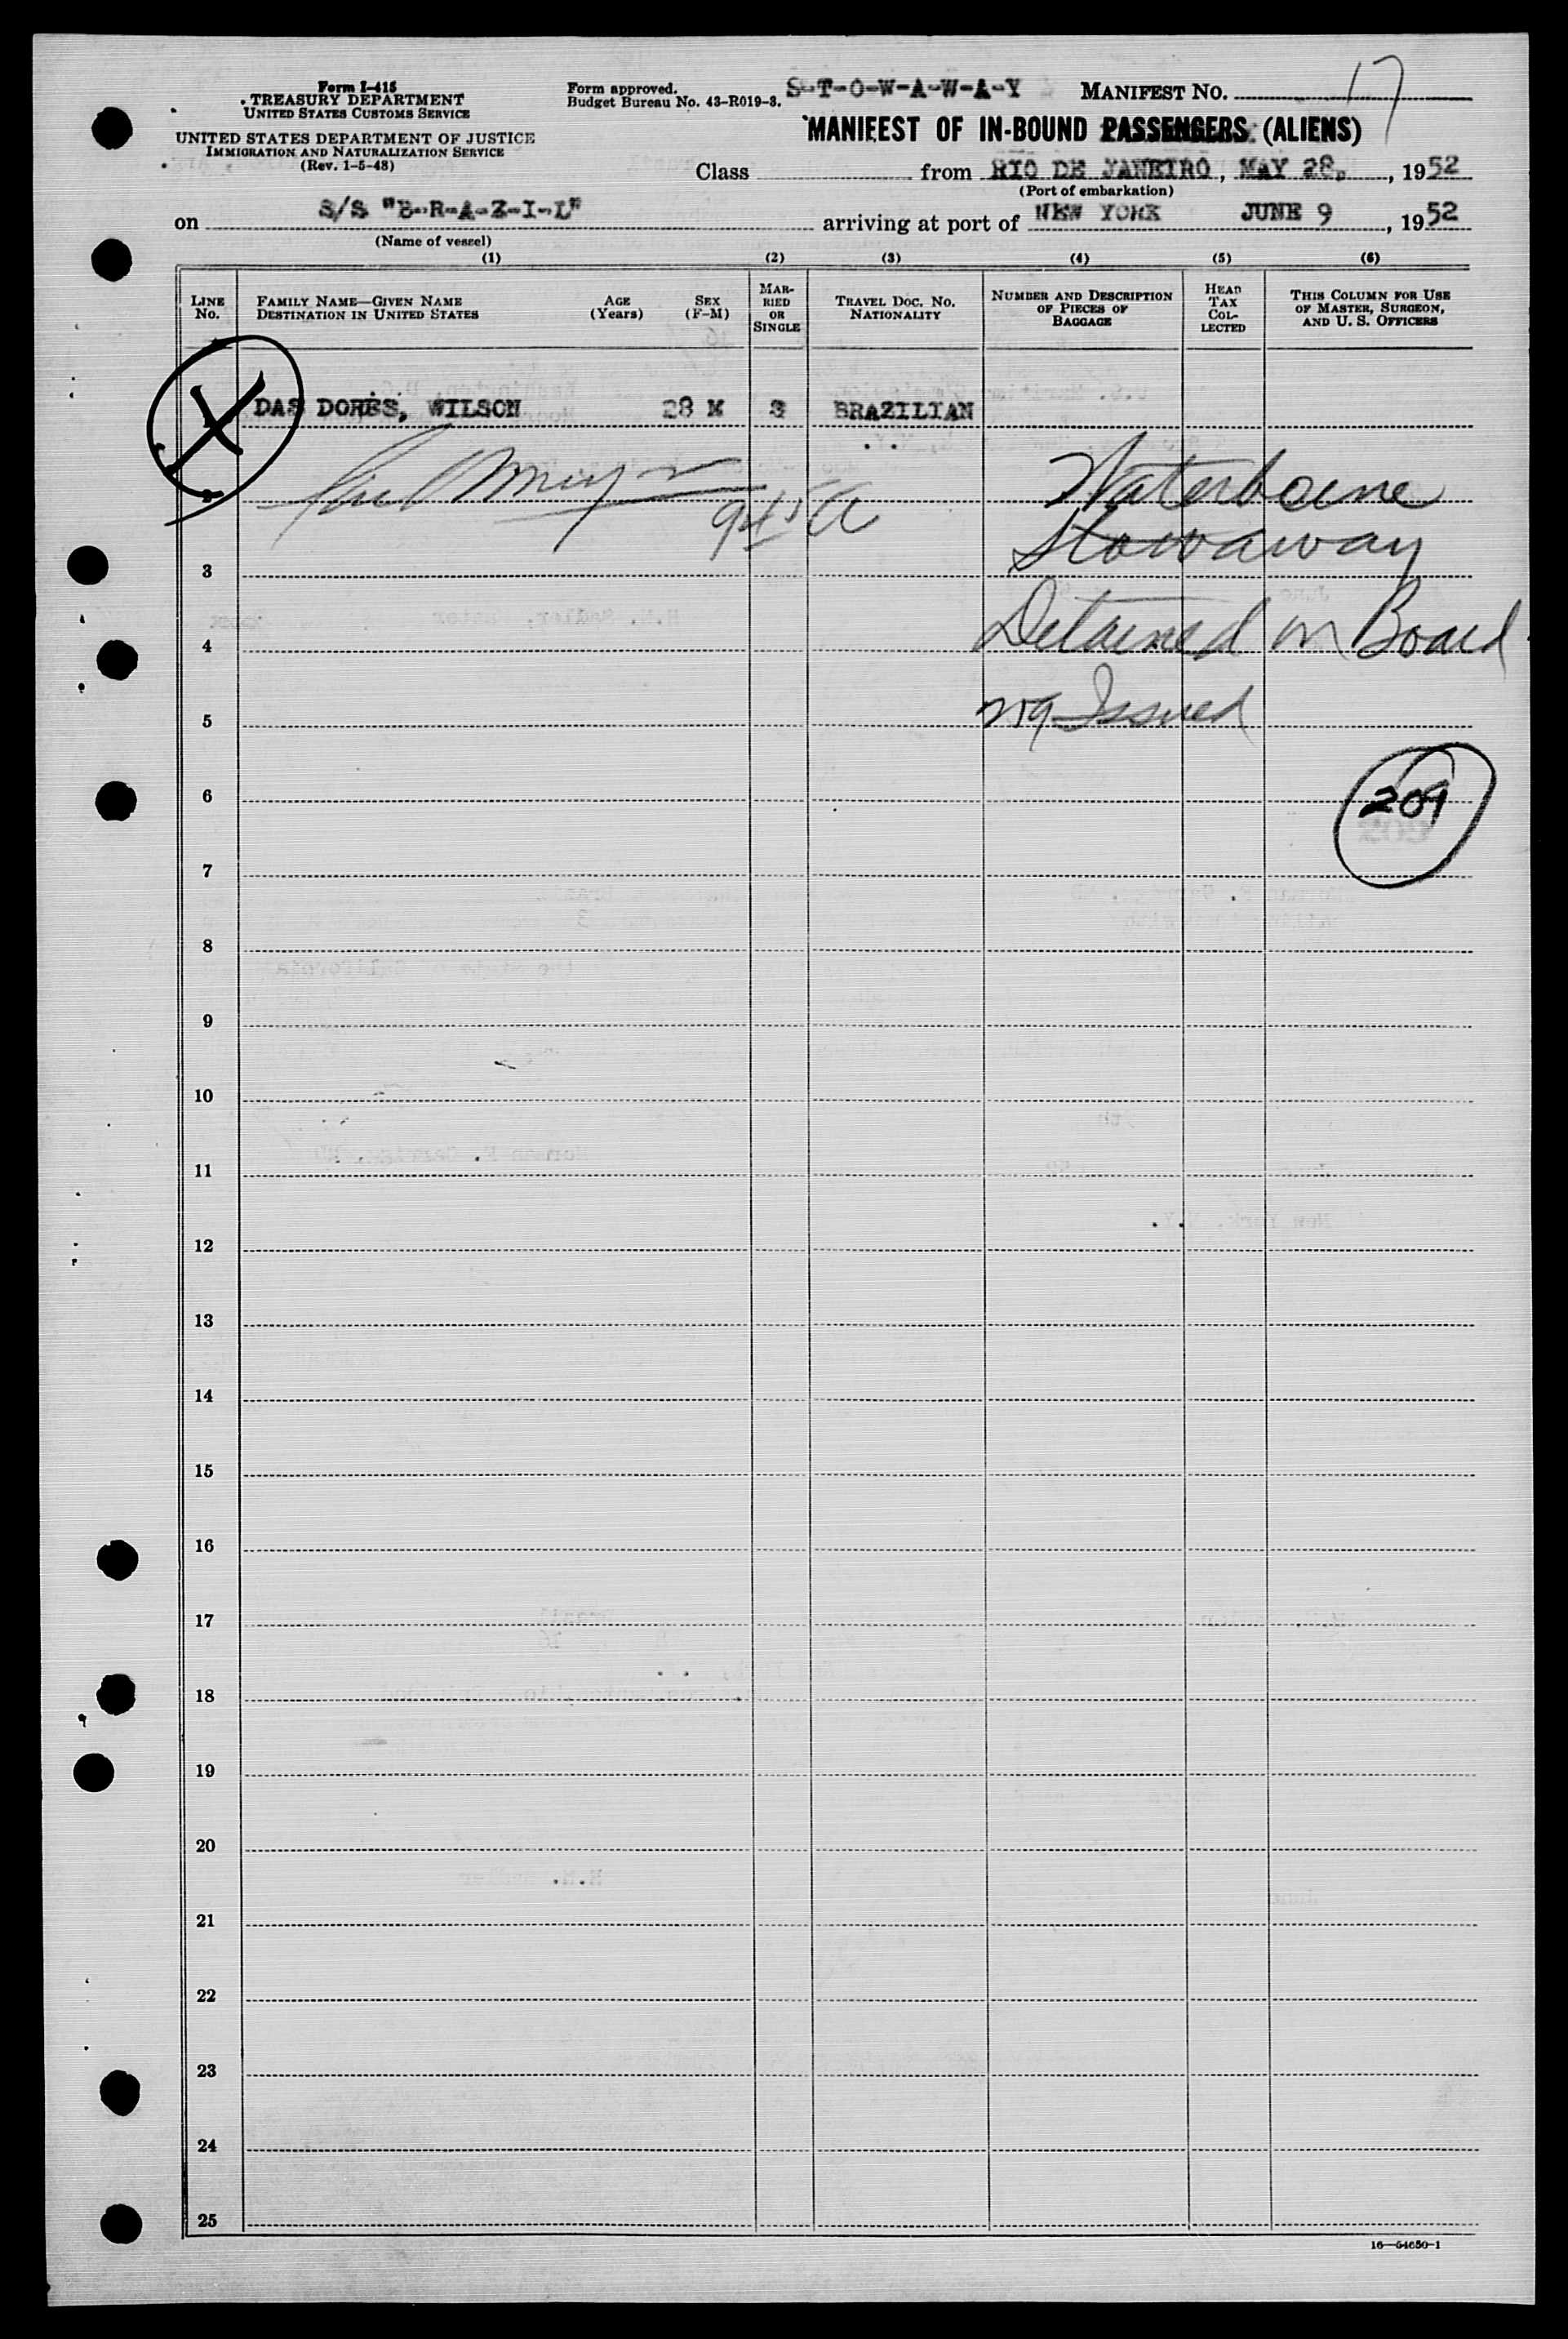 Form I-415
TREASURY DEPARTMENT
UNITED STATES CUSTOMS SERVICE
UNITED STATES DEPARTMENT OF JUSTICE
IMMIGRATION AND NATURALIZATION SERVICE
(Rev. 1-5-48)
Form approved.
Budget Bureau No. 43-R019-3.
S-T-O-W-A-W-A-Y
MANIFEST NO. 17
MANIFEST OF IN-BOUND PASSENGERS (ALIENS)
Class from RIO DE JANEIRO, MAY 28, , 1952
(Port of embarkation)
on S/S "B-R-A-Z-I-L" arriving at port of NEW YORK JUNE 9 , 1952
(Name of vessel)
(1) (2) (3) (4) (5) (6)
LINE No. FAMILY NAME—GIVEN NAME DESTINATION IN UNITED STATES AGE (Years) SEX (F-M) MARRIED OR SINGLE TRAVEL DOC. NO. NATIONALITY NUMBER AND DESCRIPTION OF PIECES OF BAGGAGE HEAD TAX COLLECTED THIS COLUMN FOR USE OF MASTER, SURGEON, AND U. S. OFFICERS
DAS DORES, WILSON 28 M S BRAZILIAN
2 Waterborne
945 A
Stowaway
3
4 Detained on Board
5 Issued
6 209
7
8
9
10
11
12
13
14
15
16
17
18
19
20
21
22
23
24
25
16—54650-1